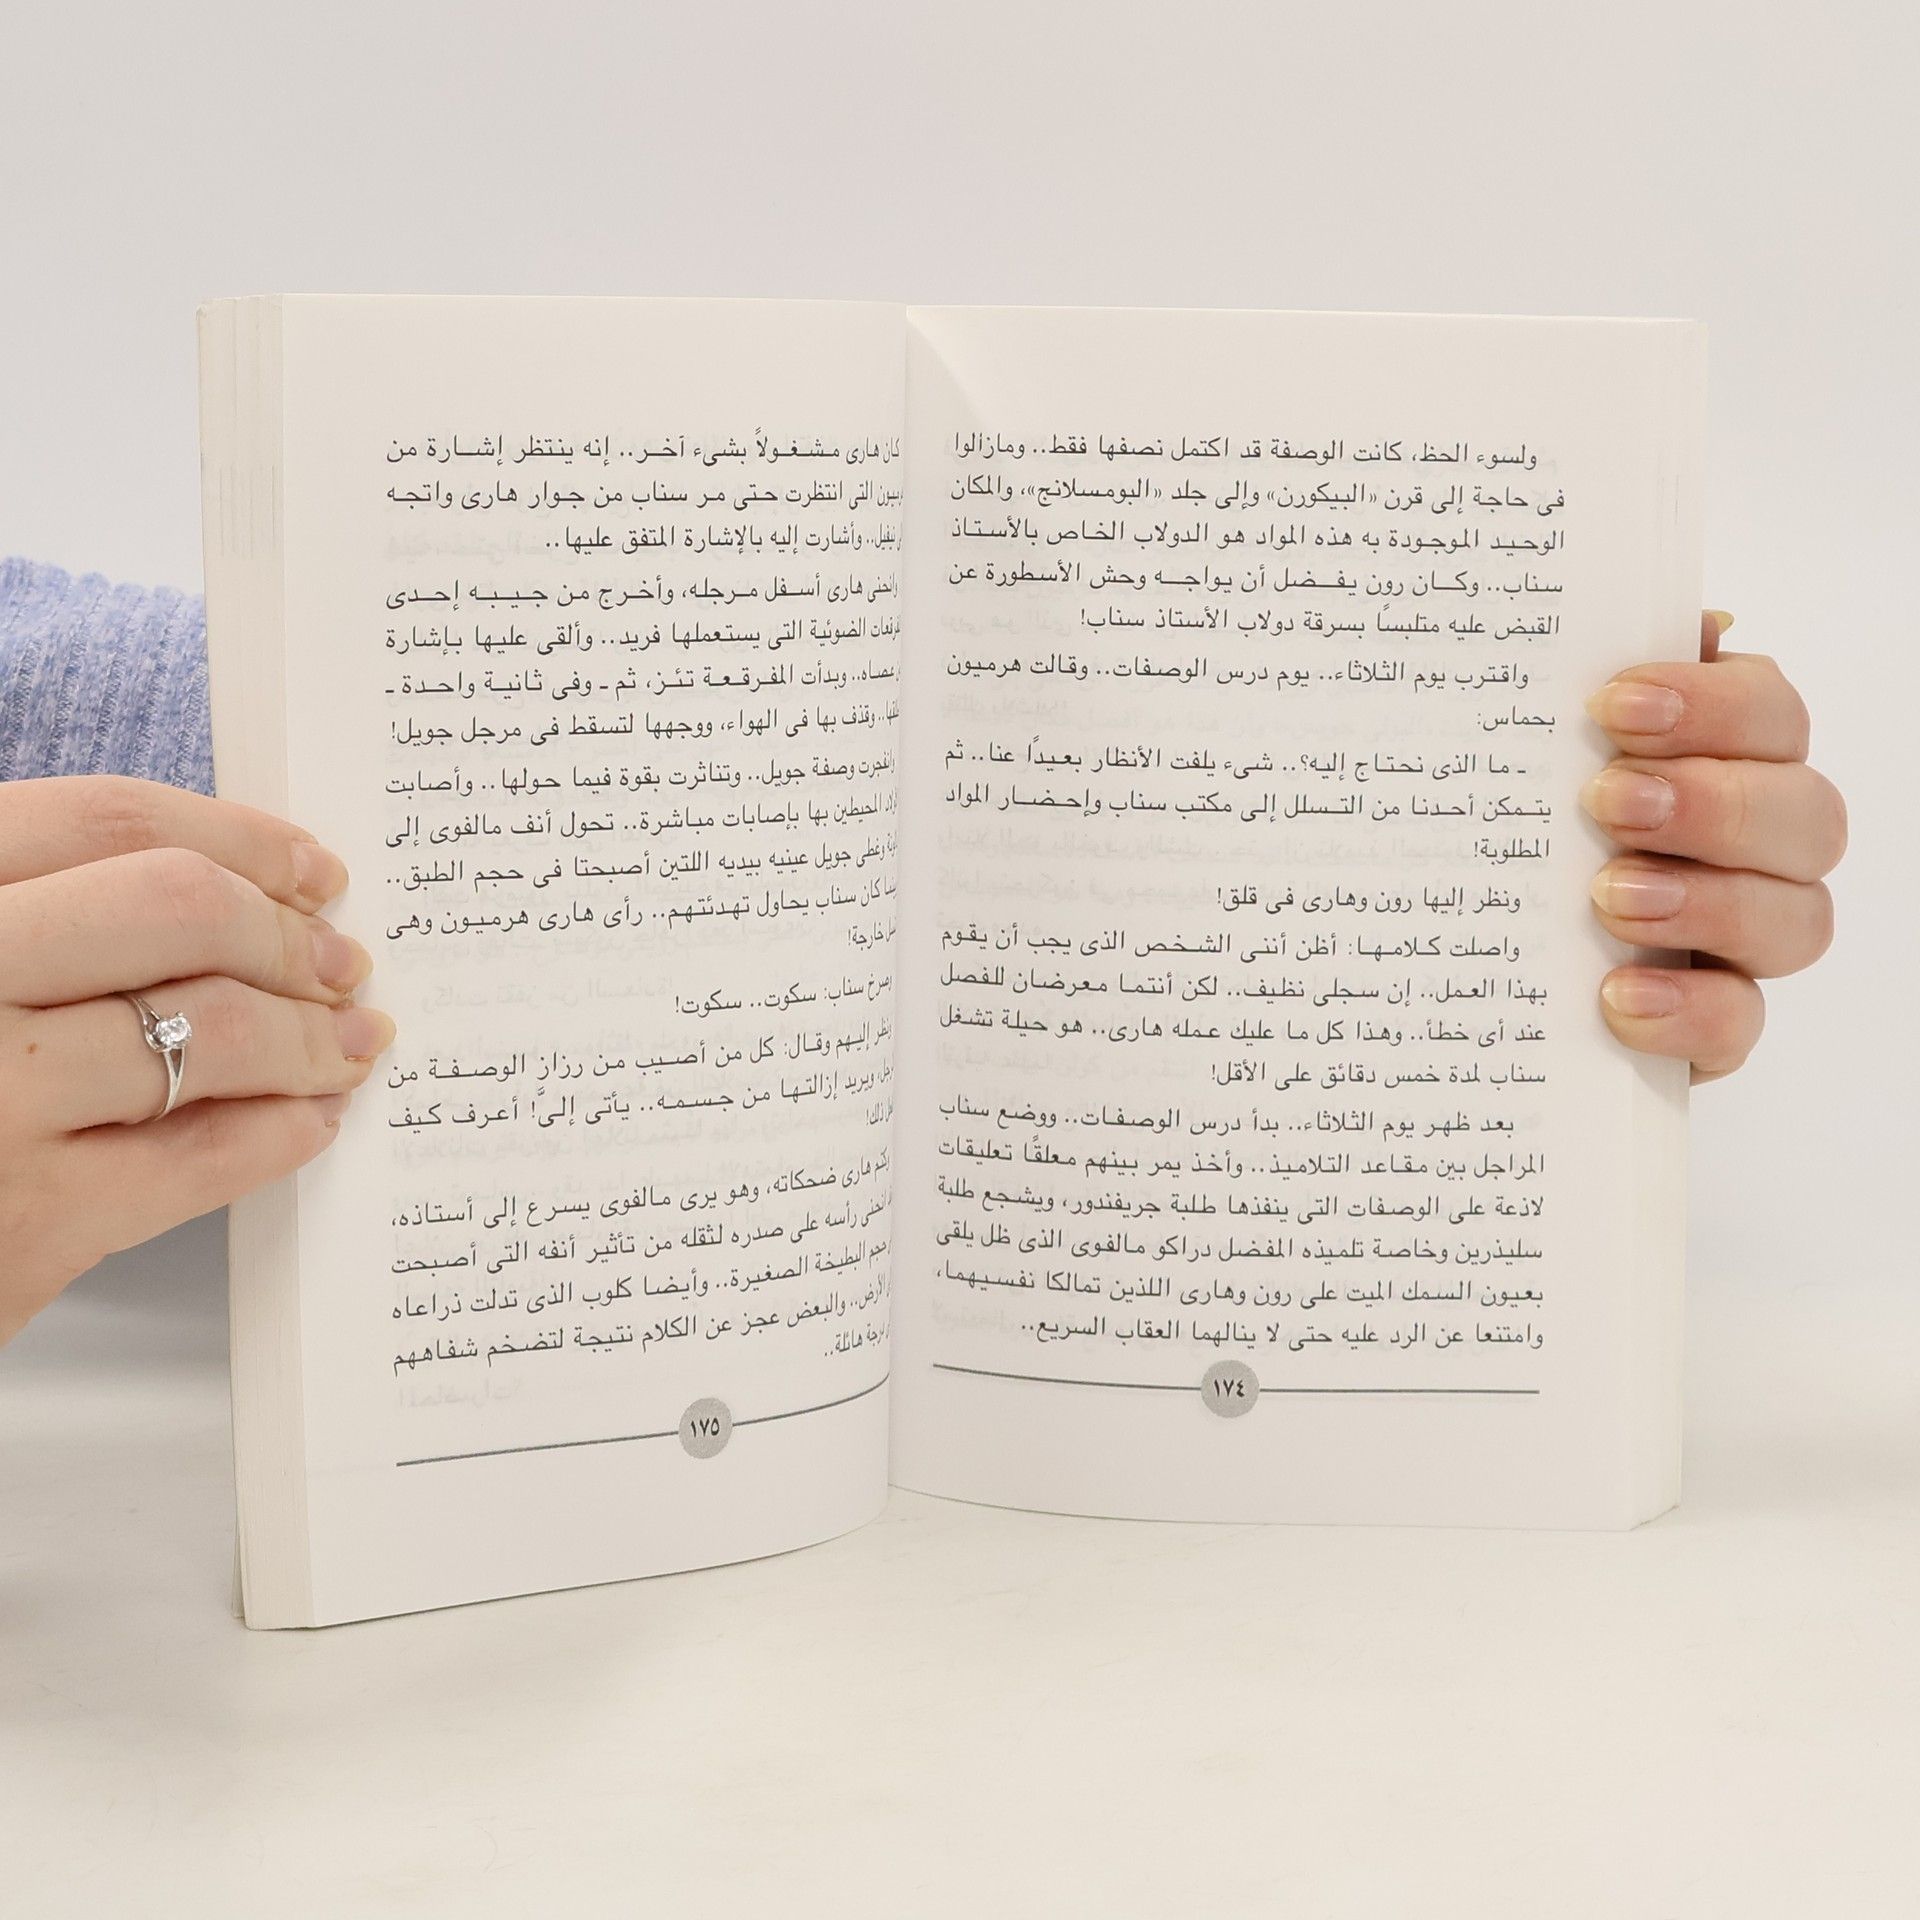 ولسوء الحظ، كانت الوصفة قد اكتمل نصفها فقط.. ومازالوا
فى حاجة إلى قرن «البيكورن» وإلى جلد «البومسلانج»، والمكان
الوحيد الموجودة به هذه المواد هو الدولاب الخاص بالأستاذ
سناب.. وكان رون يفضل أن يواجه وحش الأسطورة عن
القبض عليه متلبساً بسرقة دولاب الأستاذ سناب!
واقترب يوم الثلاثاء.. يوم درس الوصفات.. وقالت هرميون
بحماس:
ـ ما الذى نحتاج إليه؟.. شىء يلفت الأنظار بعيداً عنا.. ثم
يتمكن أحدنا من التسلل إلى مكتب سناب وإحضار المواد
المطلوبة!
ونظر إليها رون وهارى فى قلق!
واصلت كلامها: أظن أننى الشخص الذى يجب أن يقوم
بهذا العمل.. إن سجلى نظيف.. لكن أنتما معرضان للفصل
عند أى خطأ.. وهذا كل ما عليك عمله هارى.. هو حيلة تشغل
سناب لمدة خمس دقائق على الأقل!
بعد ظهر يوم الثلاثاء.. بدأ درس الوصفات.. ووضع سناب
المراجل بين مقاعد التلاميذ.. وأخذ يمر بينهم معلقًا تعليقات
لاذعة على الوصفات التى ينفذها طلبة جريفندور، ويشجع طلبة
سليذرين وخاصة تلميذه المفضل دراكو مالفوى الذى ظل يلقى
بعيون السمك الميت على رون وهارى اللذين تمالكا نفسيهما،
وامتنعا عن الرد عليه حتى لا ينالهما العقاب السريع..
١٧٤
كان هارى مشغولاً بشىء آخر.. إنه ينتظر إشارة من
التى انتظرت حتى مر سناب من جوار هارى واتجه
نيفيل.. وأشارت إليه بالإشارة المتفق عليها..
وانحنى هارى أسفل مرجله، وأخرج من جيبه إحدى
الضوئية التى يستعملها فريد.. وألقى عليها بإشارة
عصاه.. وبدأت المفرقعة تئز، ثم ـ وفى ثانية واحدة ـ
وقذف بها فى الهواء، ووجهها لتسقط فى مرجل جويل!
وانفجرت وصفة جويل.. وتناثرت بقوة فيما حولها.. وأصابت
المحيطين بها بإصابات مباشرة.. تحول أنف مالفوى إلى
وغطى جويل عينيه بيديه اللتين أصبحتا فى حجم الطبق..
كان سناب يحاول تهدئتهم.. رأى هارى هرميون وهى
خارجة!
وصرخ سناب: سكوت.. سكوت!
ونظر إليهم وقال: كل من أصيب من رزاز الوصفة من
ويريد إزالتها من جسمه.. يأتى إلىَّ! أعرف كيف
ذلك!
وكتم هارى ضحكاته، وهو يرى مالفوى يسرع إلى أستاذه،
انحنى رأسه على صدره لثقله من تأثير أنفه التى أصبحت
حجم البطيخة الصغيرة.. وأيضا كلوب الذى تدلت ذراعاه
الأرض.. والبعض عجز عن الكلام نتيجة لتضخم شفاههم
هائلة..
١٧٥